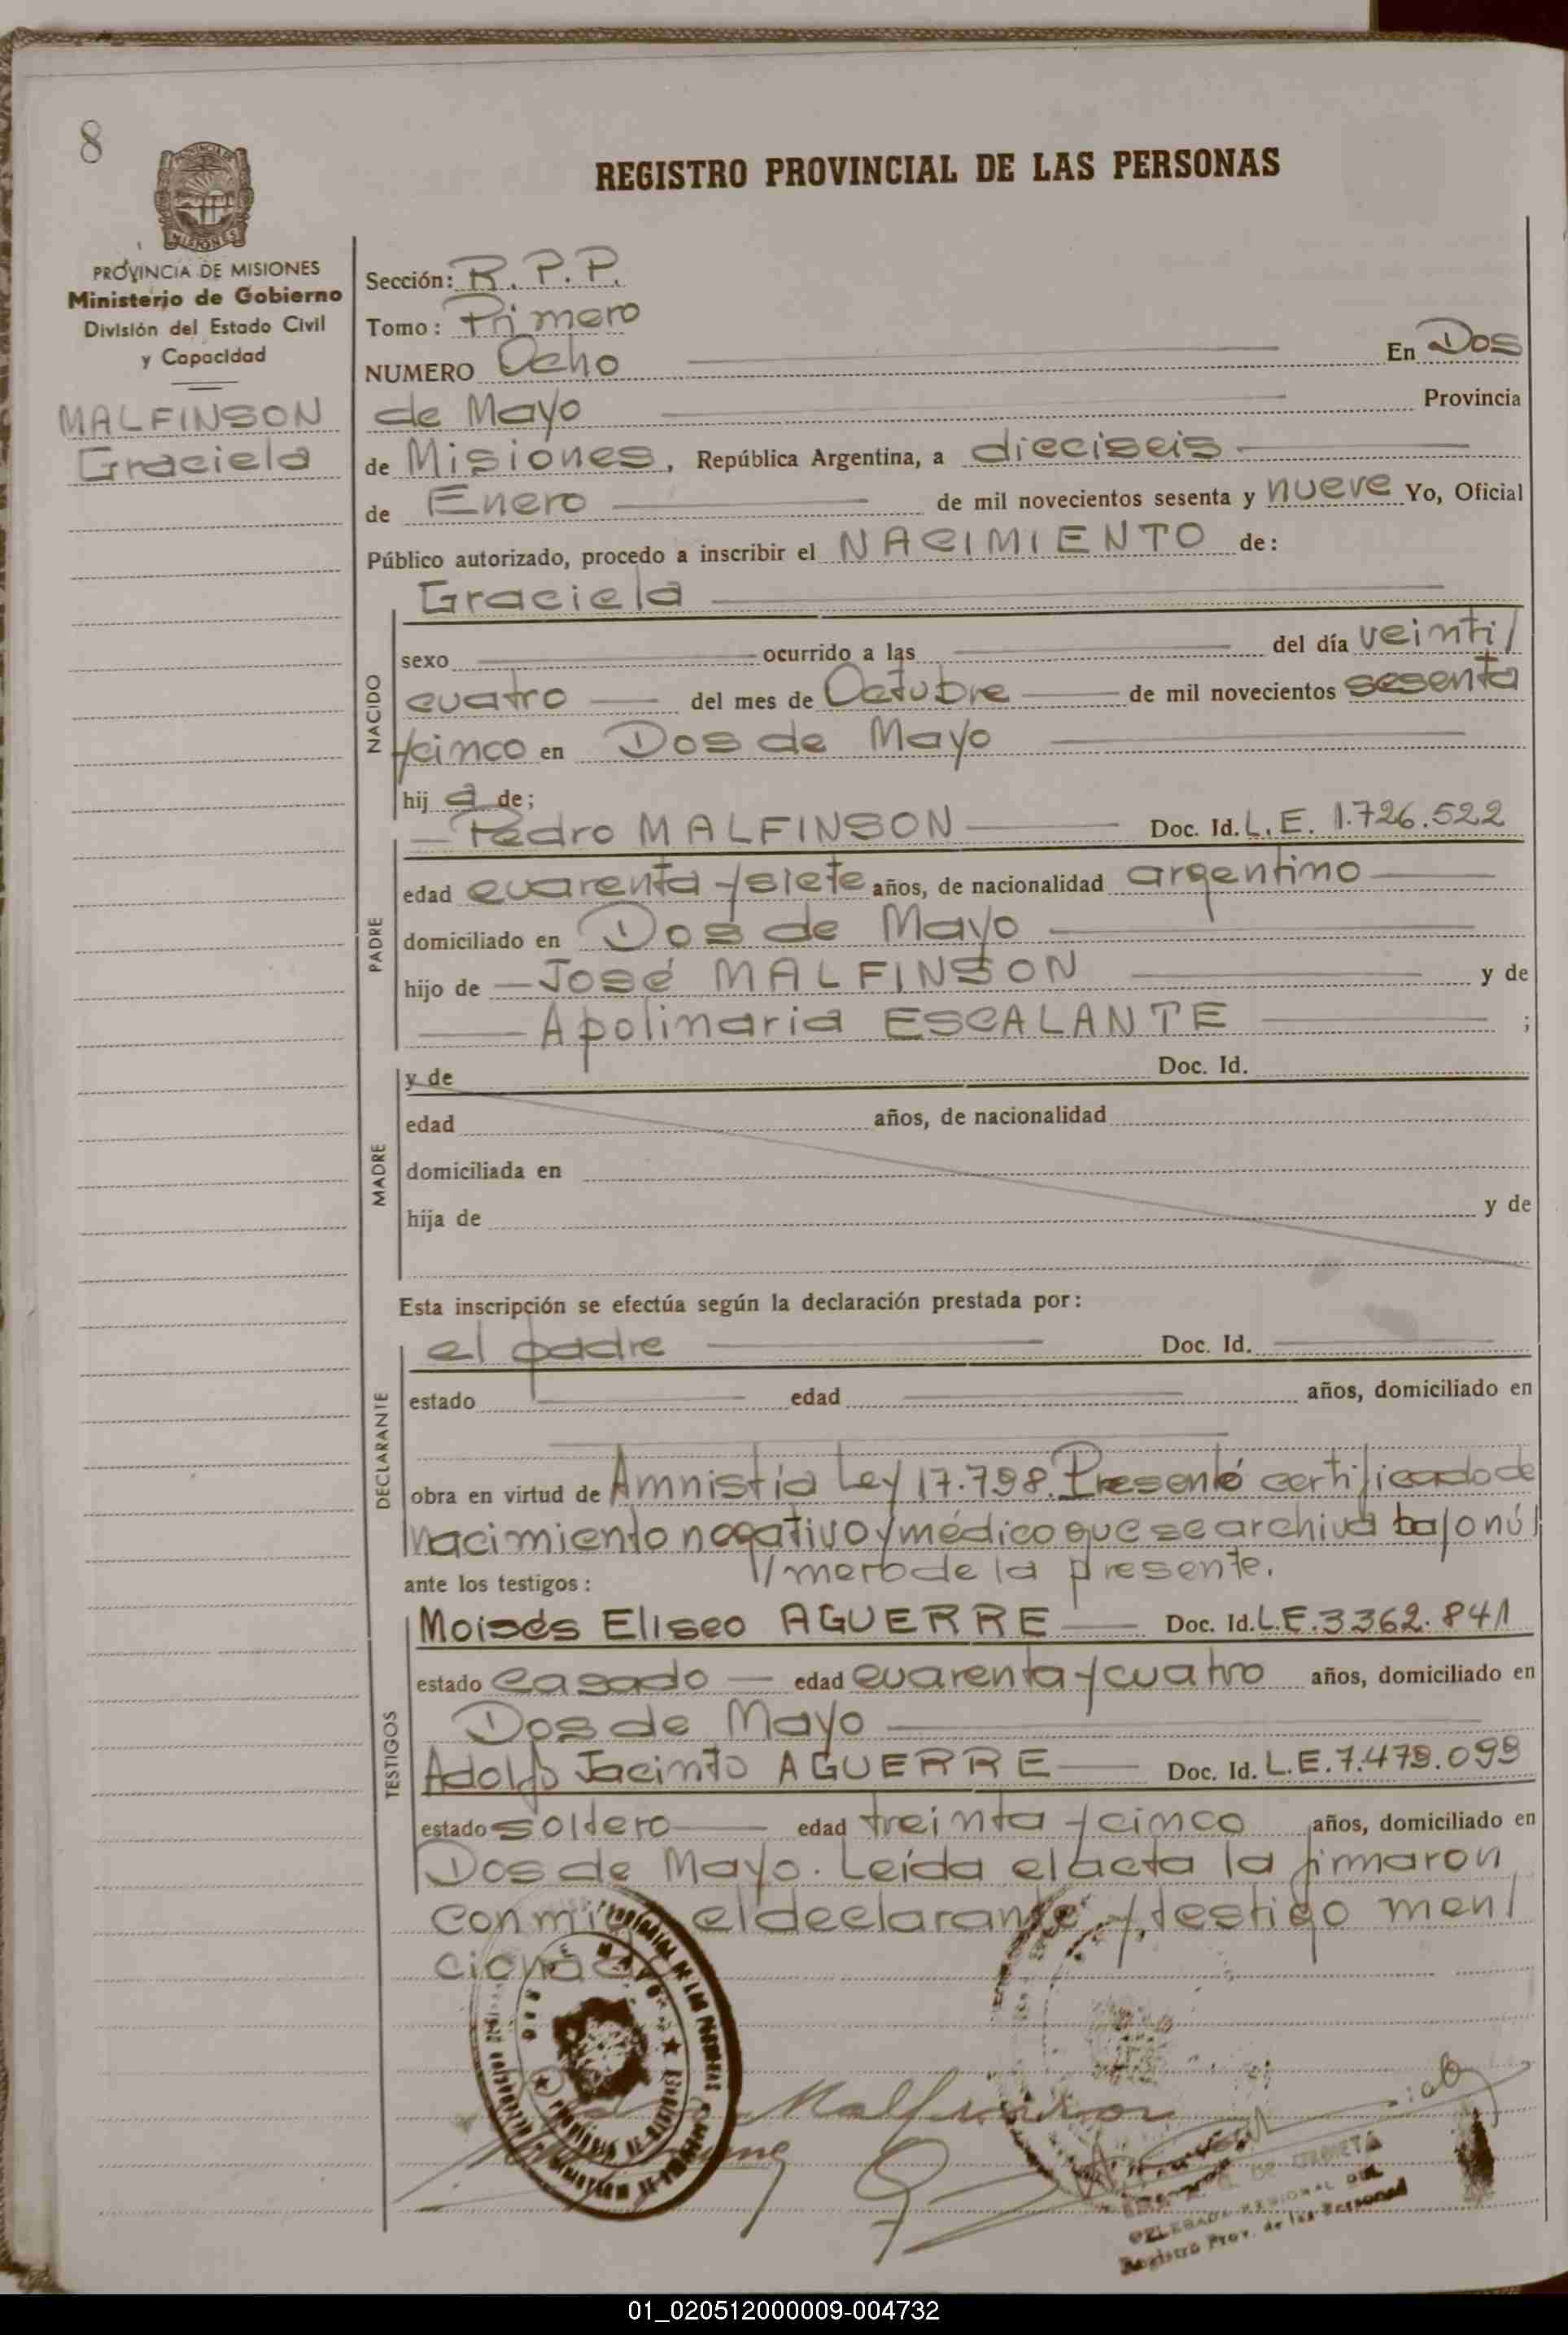 8
REGISTRO PROVINCIAL DE LAS PERSONAS
PROVINCIA DE MISIONES
Ministerio de Gobierno
División del Estado Civil
y Capacidad
MALFINSON
Graciela
Sección: R.P.P.
Tomo: Primero
NUMERO Ocho En Dos
de Mayo Provincia
de Misiones, República Argentina, a dieciseis
de Enero de mil novecientos sesenta y nueve Yo, Oficial
Público autorizado, procedo a inscribir el NACIMIENTO de:
Graciela
NACIDO
sexo ocurrido a las del día veinti/
cuatro del mes de Octubre de mil novecientos sesenta
y cinco en Dos de Mayo
hij a de;
PADRE
Pedro MALFINSON Doc. Id. L.E. 1.726.522
edad cuarenta y siete años, de nacionalidad argentino
domiciliado en Dos de Mayo
hijo de José MALFINSON y de
Apolinaria ESCALANTE ;
MADRE
y de Doc. Id.
edad años, de nacionalidad
domiciliada en
hija de y de
Esta inscripción se efectúa según la declaración prestada por:
DECLARANTE
el padre Doc. Id.
estado edad años, domiciliado en
obra en virtud de Amnistía Ley 17.798. Presentó certificado de
nacimiento negativo y médico que se archiva bajo nú/
//mero de la presente.
ante los testigos:
TESTIGOS
Moisés Eliseo AGUERRE Doc. Id. L.E. 3362.841
estado casado edad cuarenta y cuatro años, domiciliado en
Dos de Mayo
Adolfo Jacinto AGUERRE Doc. Id. L.E. 7.479.099
estado soltero edad treinta y cinco años, domiciliado en
Dos de Mayo. Leída el acta la firmaron
conmigo el declarante y testigo men/
Malfinson
DELEGADA REGIONAL DEL
Registro Prov. de las Personas
01_020512000009-004732